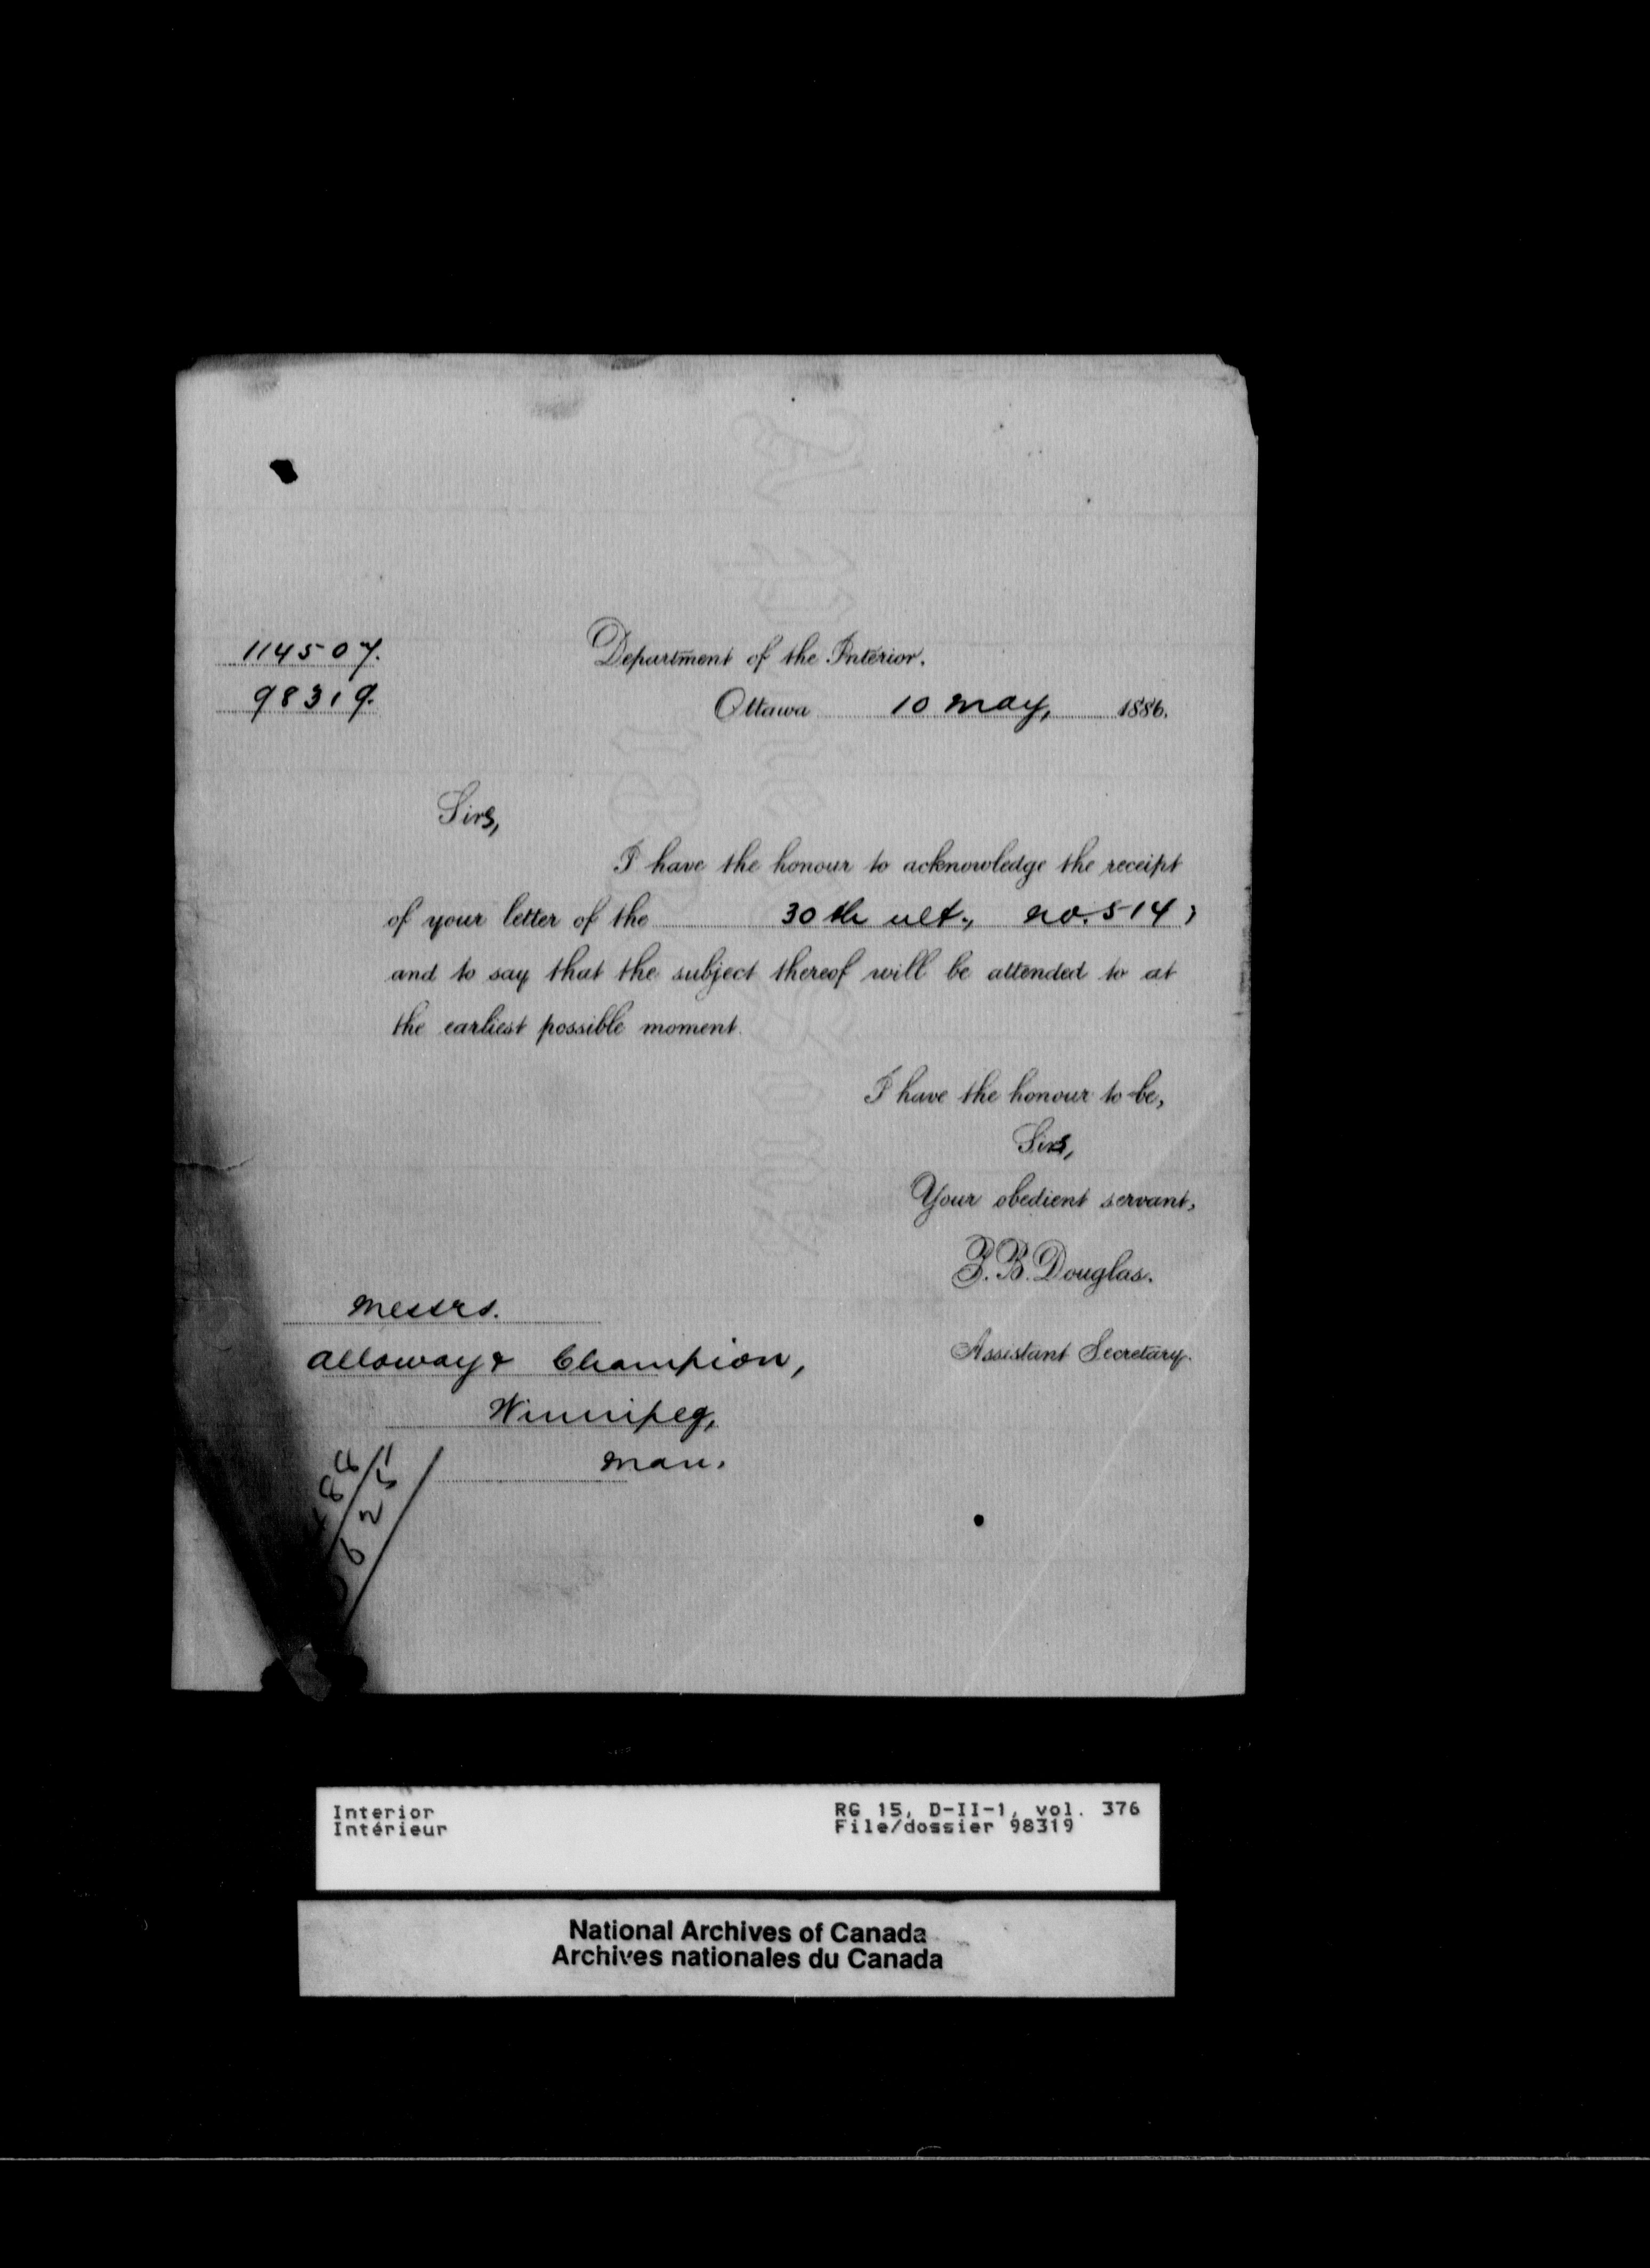 114507.
98319.
Department of the Interior.
Ottawa 10 May, 1886.
Sirs,
I have the honour to acknowledge the receipt
of your letter of the 30th ult., no. 514,
and to say that the subject thereof will be attended to at
the earliest possible moment.
I have the honour to be,
Sirs,
Your obedient servant,
P. B. Douglas.
Assistant Secretary.
Messrs.
Alloway & Champion,
Winnipeg,
Man.
Interior
Intérieur
RG 15, D-II-1, vol. 376
File/dossier 98319
National Archives of Canada
Archives nationales du Canada